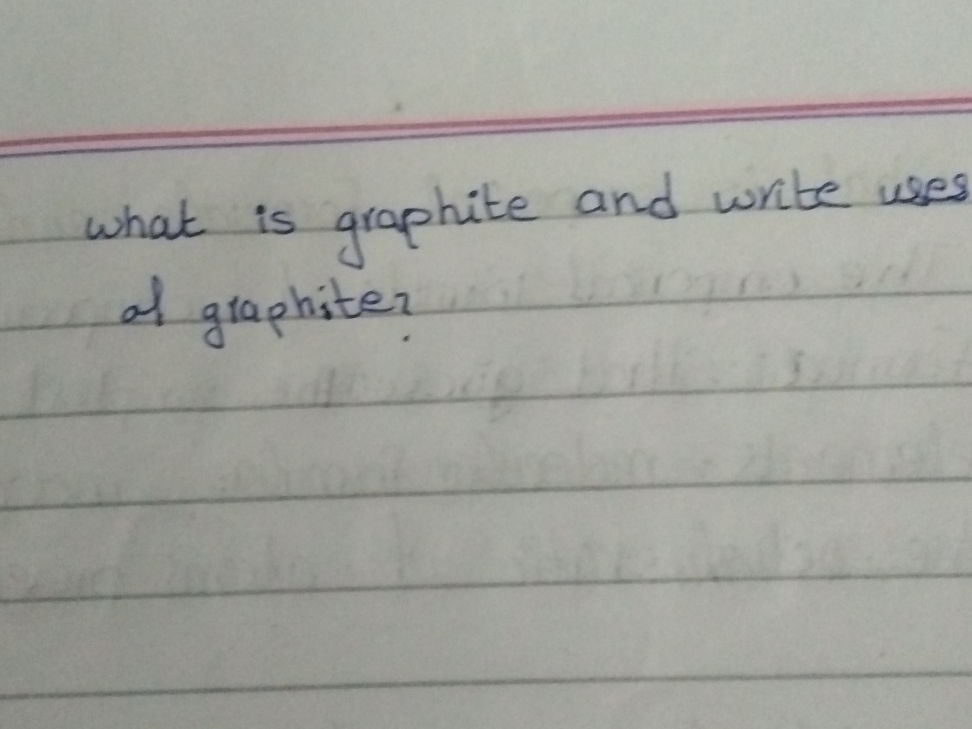 what is graphite and write uses
of graphite?